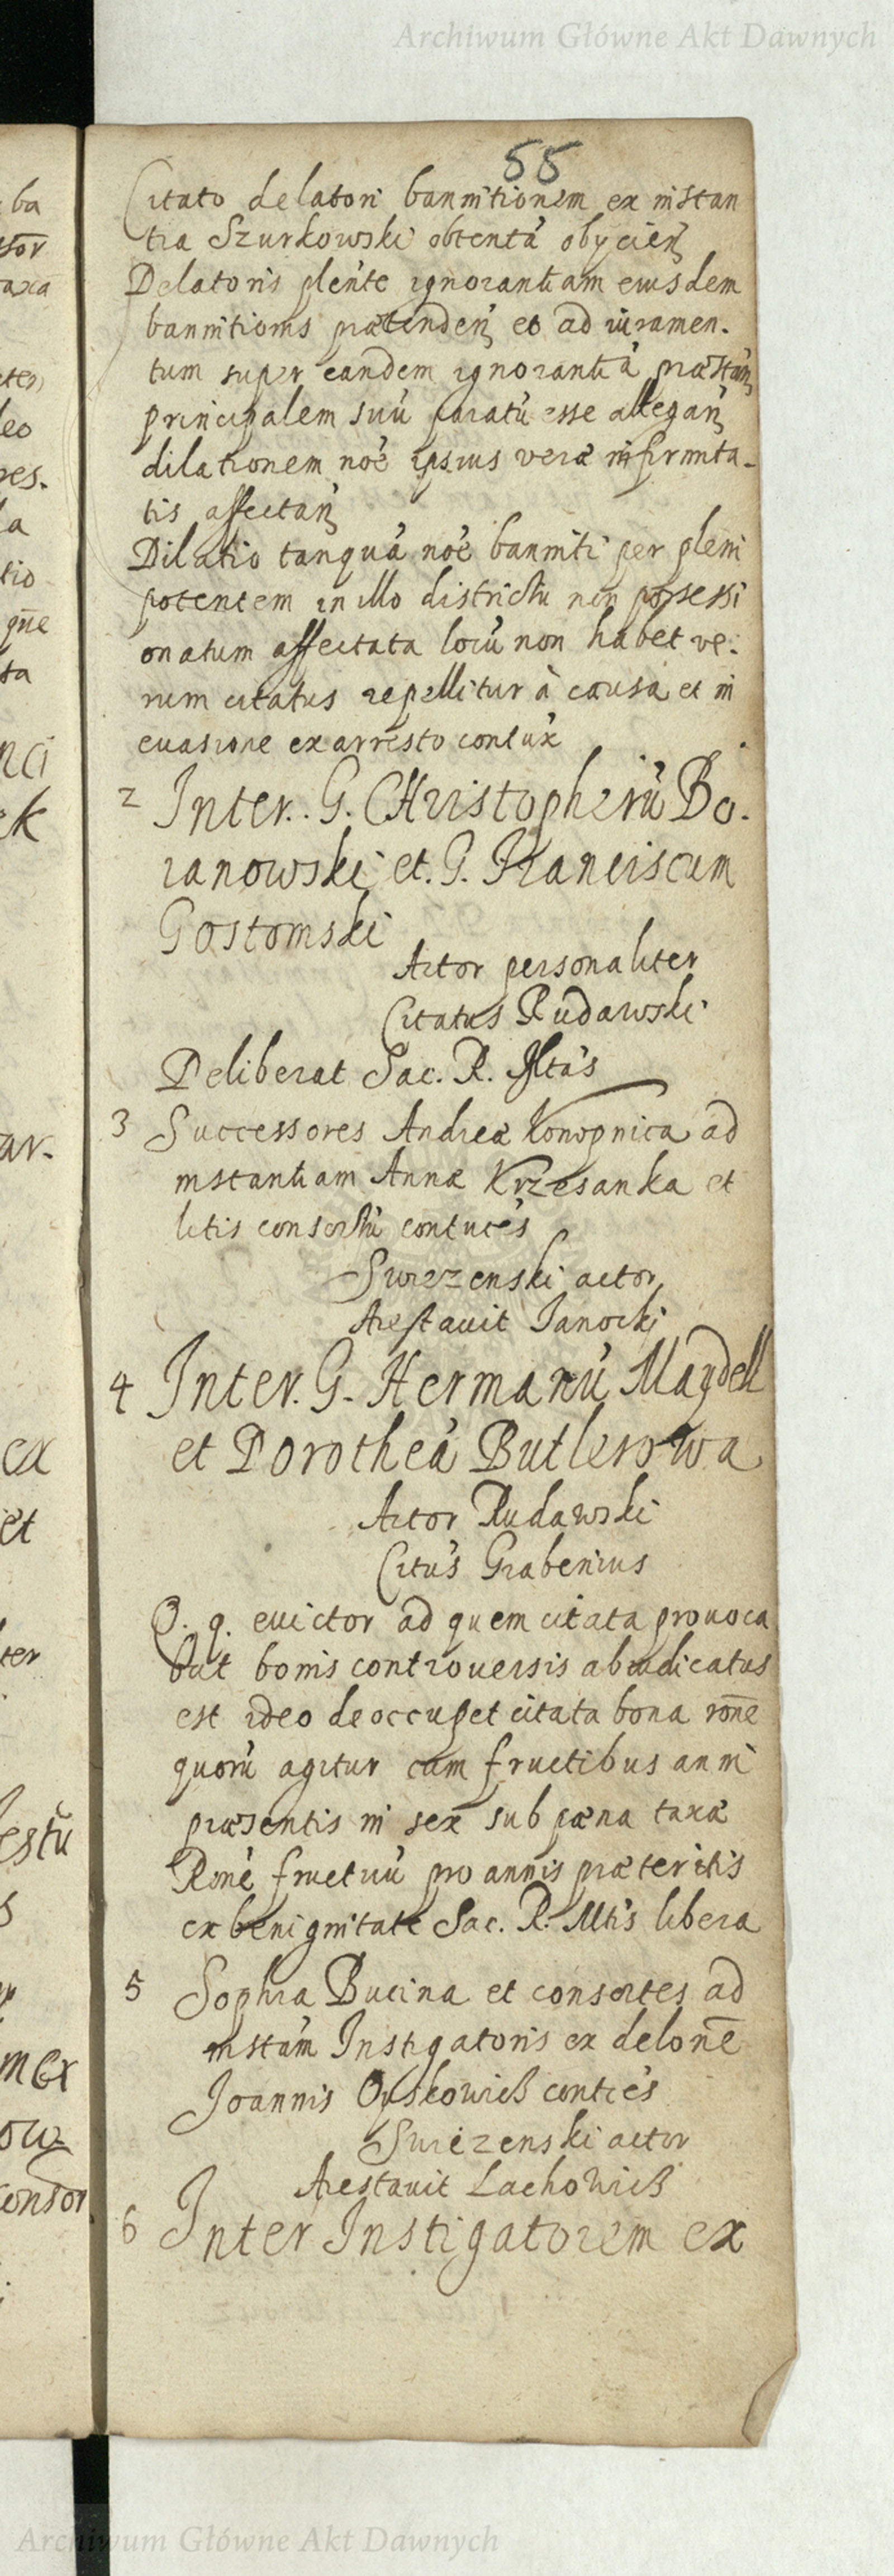 Archiwum Główne Akt Dawnych
55
Citato delatori bannitionem ex instan
tia Szurkowski obtentā obÿcien
Delatoris plente ignorantiam eiusdem
bannitionis prætenden et ad iuramen.
tum super eandem ignorantiā præstan
principalem suū paratū esse allegan
dilationem noe ipsius veræ infirmita-
tis affectan
Dilatio tanquā noe banniti per pleni
potentem in illo districtu non possessi
onatum affectata locū non habet ve.
rum citatus repellitur à causa et in
euasione ex arresto contūx
2 Inter. G. CHristopherū Bo.
ranowski et. G. Franciscum
Gostomski
Actor personaliter
Citatus Rudawski
Deliberat Sac. R. Mtas
3 Successores Andreæ Konopnica ad
instantiam Annæ Krzesanka et
litis consortiū contuces
actor
Arestauit Janocki
4 Inter. G. Hermanū Maydell
et Dorotheā Butlerowa
Actor Rudawski
Citus Grabenius
Q. q. euictor ad quem citata prouoca
bat bonis controuersis abiudicatus
est ideo deoccupet citata bona rōne
quorū agitur cum fructibus anni
præsentis in sex sub pæna taxæ
Rone fructuū pro annis præteritis
ex benignitate Sac. R. Mtis libera
5 Sophia Bucina et consortes ad
instām Instigatoris ex delone
Joannis conties
actor
Arestauit Lachowicz
6 Inter Instigatorem ex
ba
leo
la
tio
ta
nci
ek
ex
et
ter
Archiwum Główne Akt Dawnych